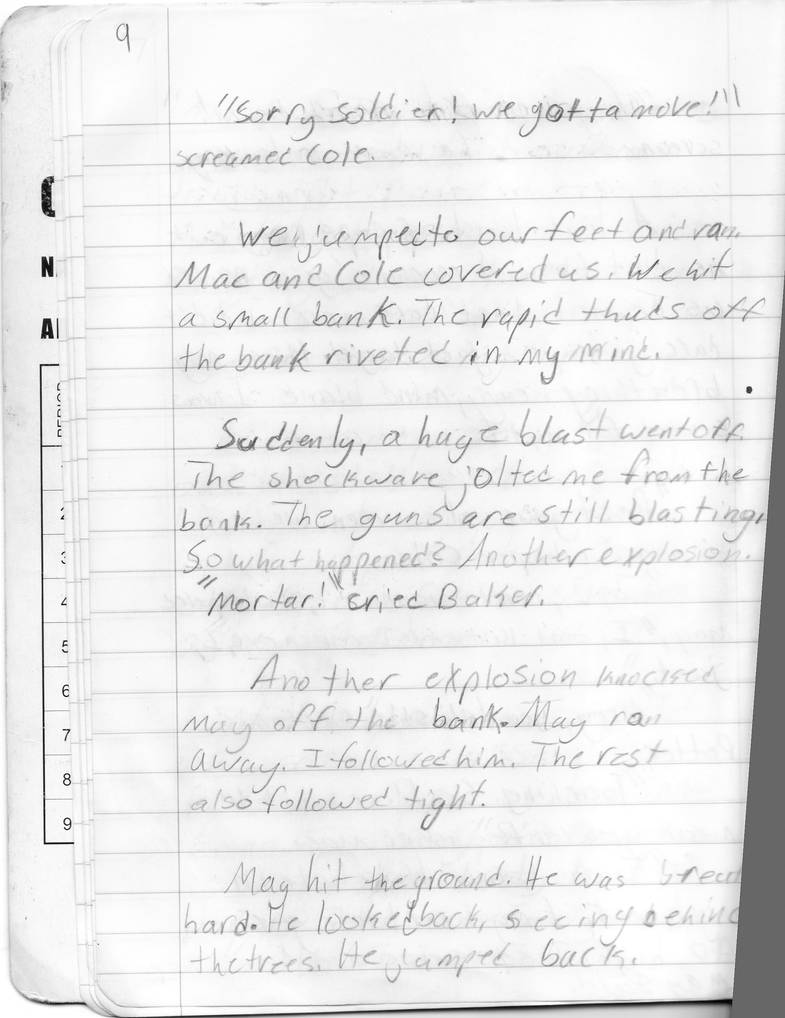 9
"Sorry soldier! We gotta move!"
screamed Cole.
We jumped to our feet and ran.
Mac and Cole covered us. We hit
a small bank. The rapid thuds off
the bank riveted in my mind.
Suddenly, a huge blast went off.
The shockwave jolted me from the
bank. The guns are still blasting,
So what happened? Another explosion.
"Mortar!" cried Baker.
Another explosion knocked
May off the bank. May ran
away. I followed him. The rest
also followed tight.
May hit the ground. He was
hard. He looked back, seeing behind
the trees. He jumped back.
N
A
PERIOD
1
2
3
4
5
6
7
8
9